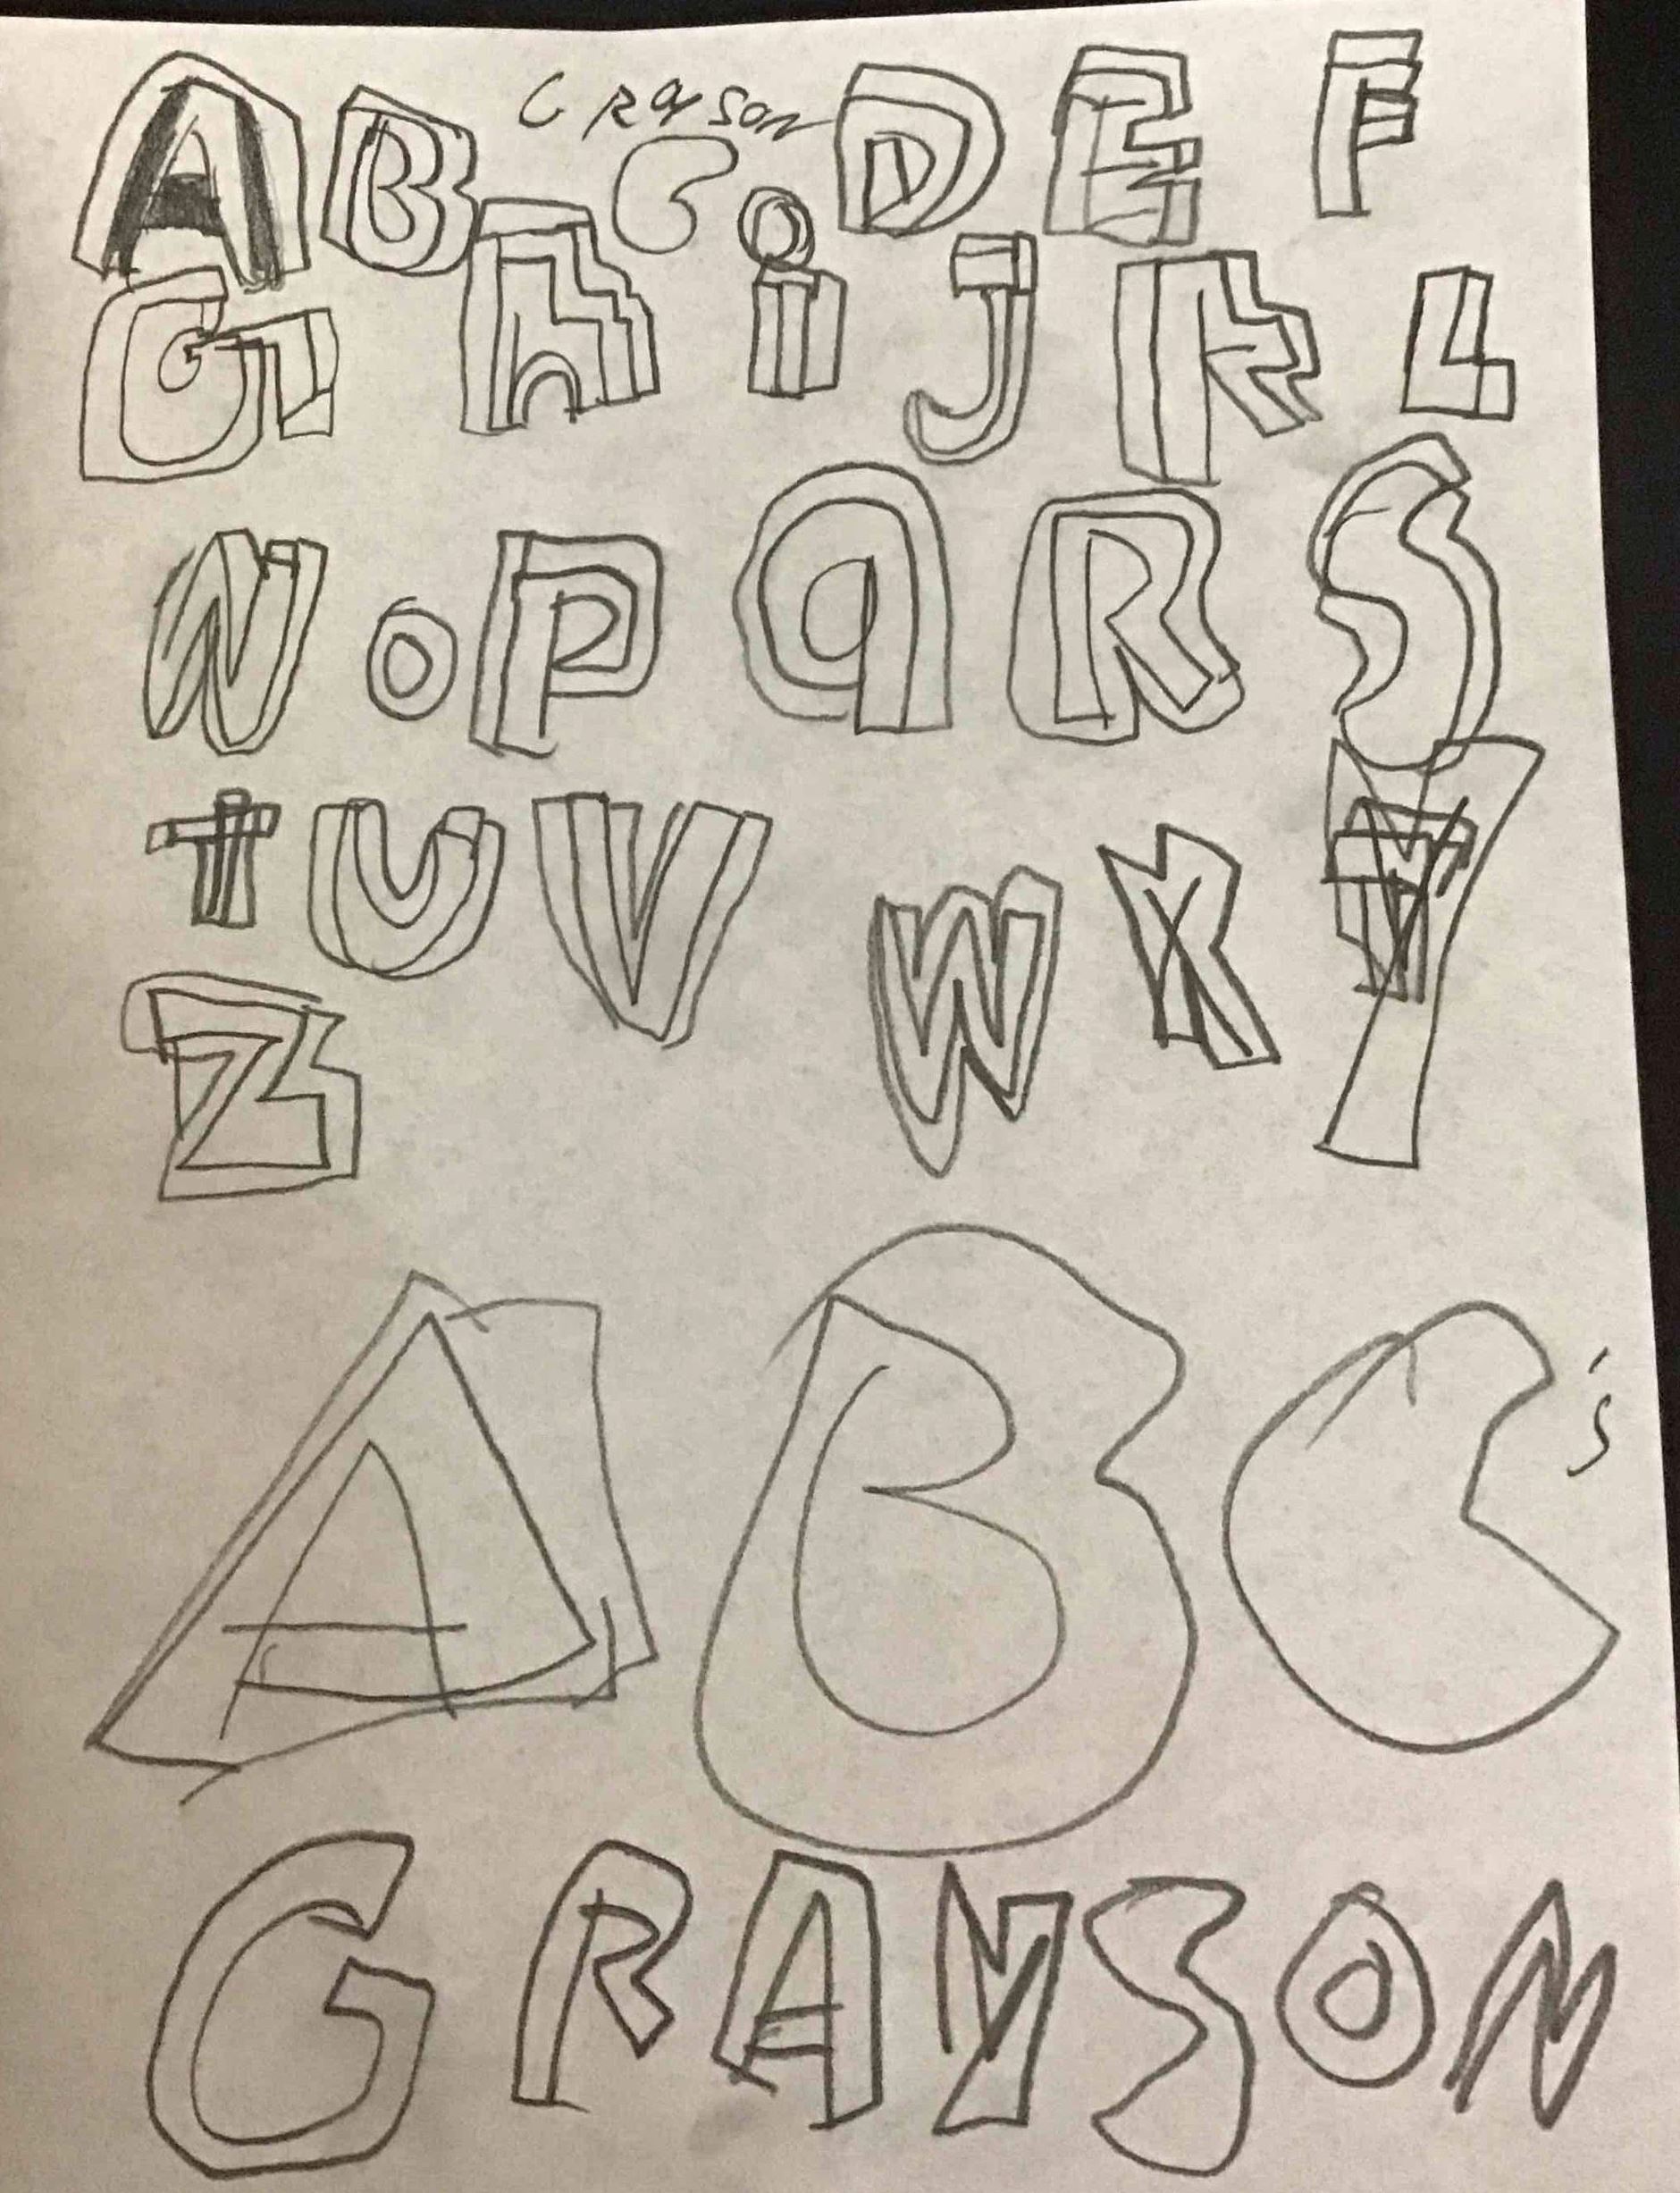 Grayson
A B C D E F
G h i J K L
N O P Q R S
T U V W X Y
Z
ABC's
GRAYSON